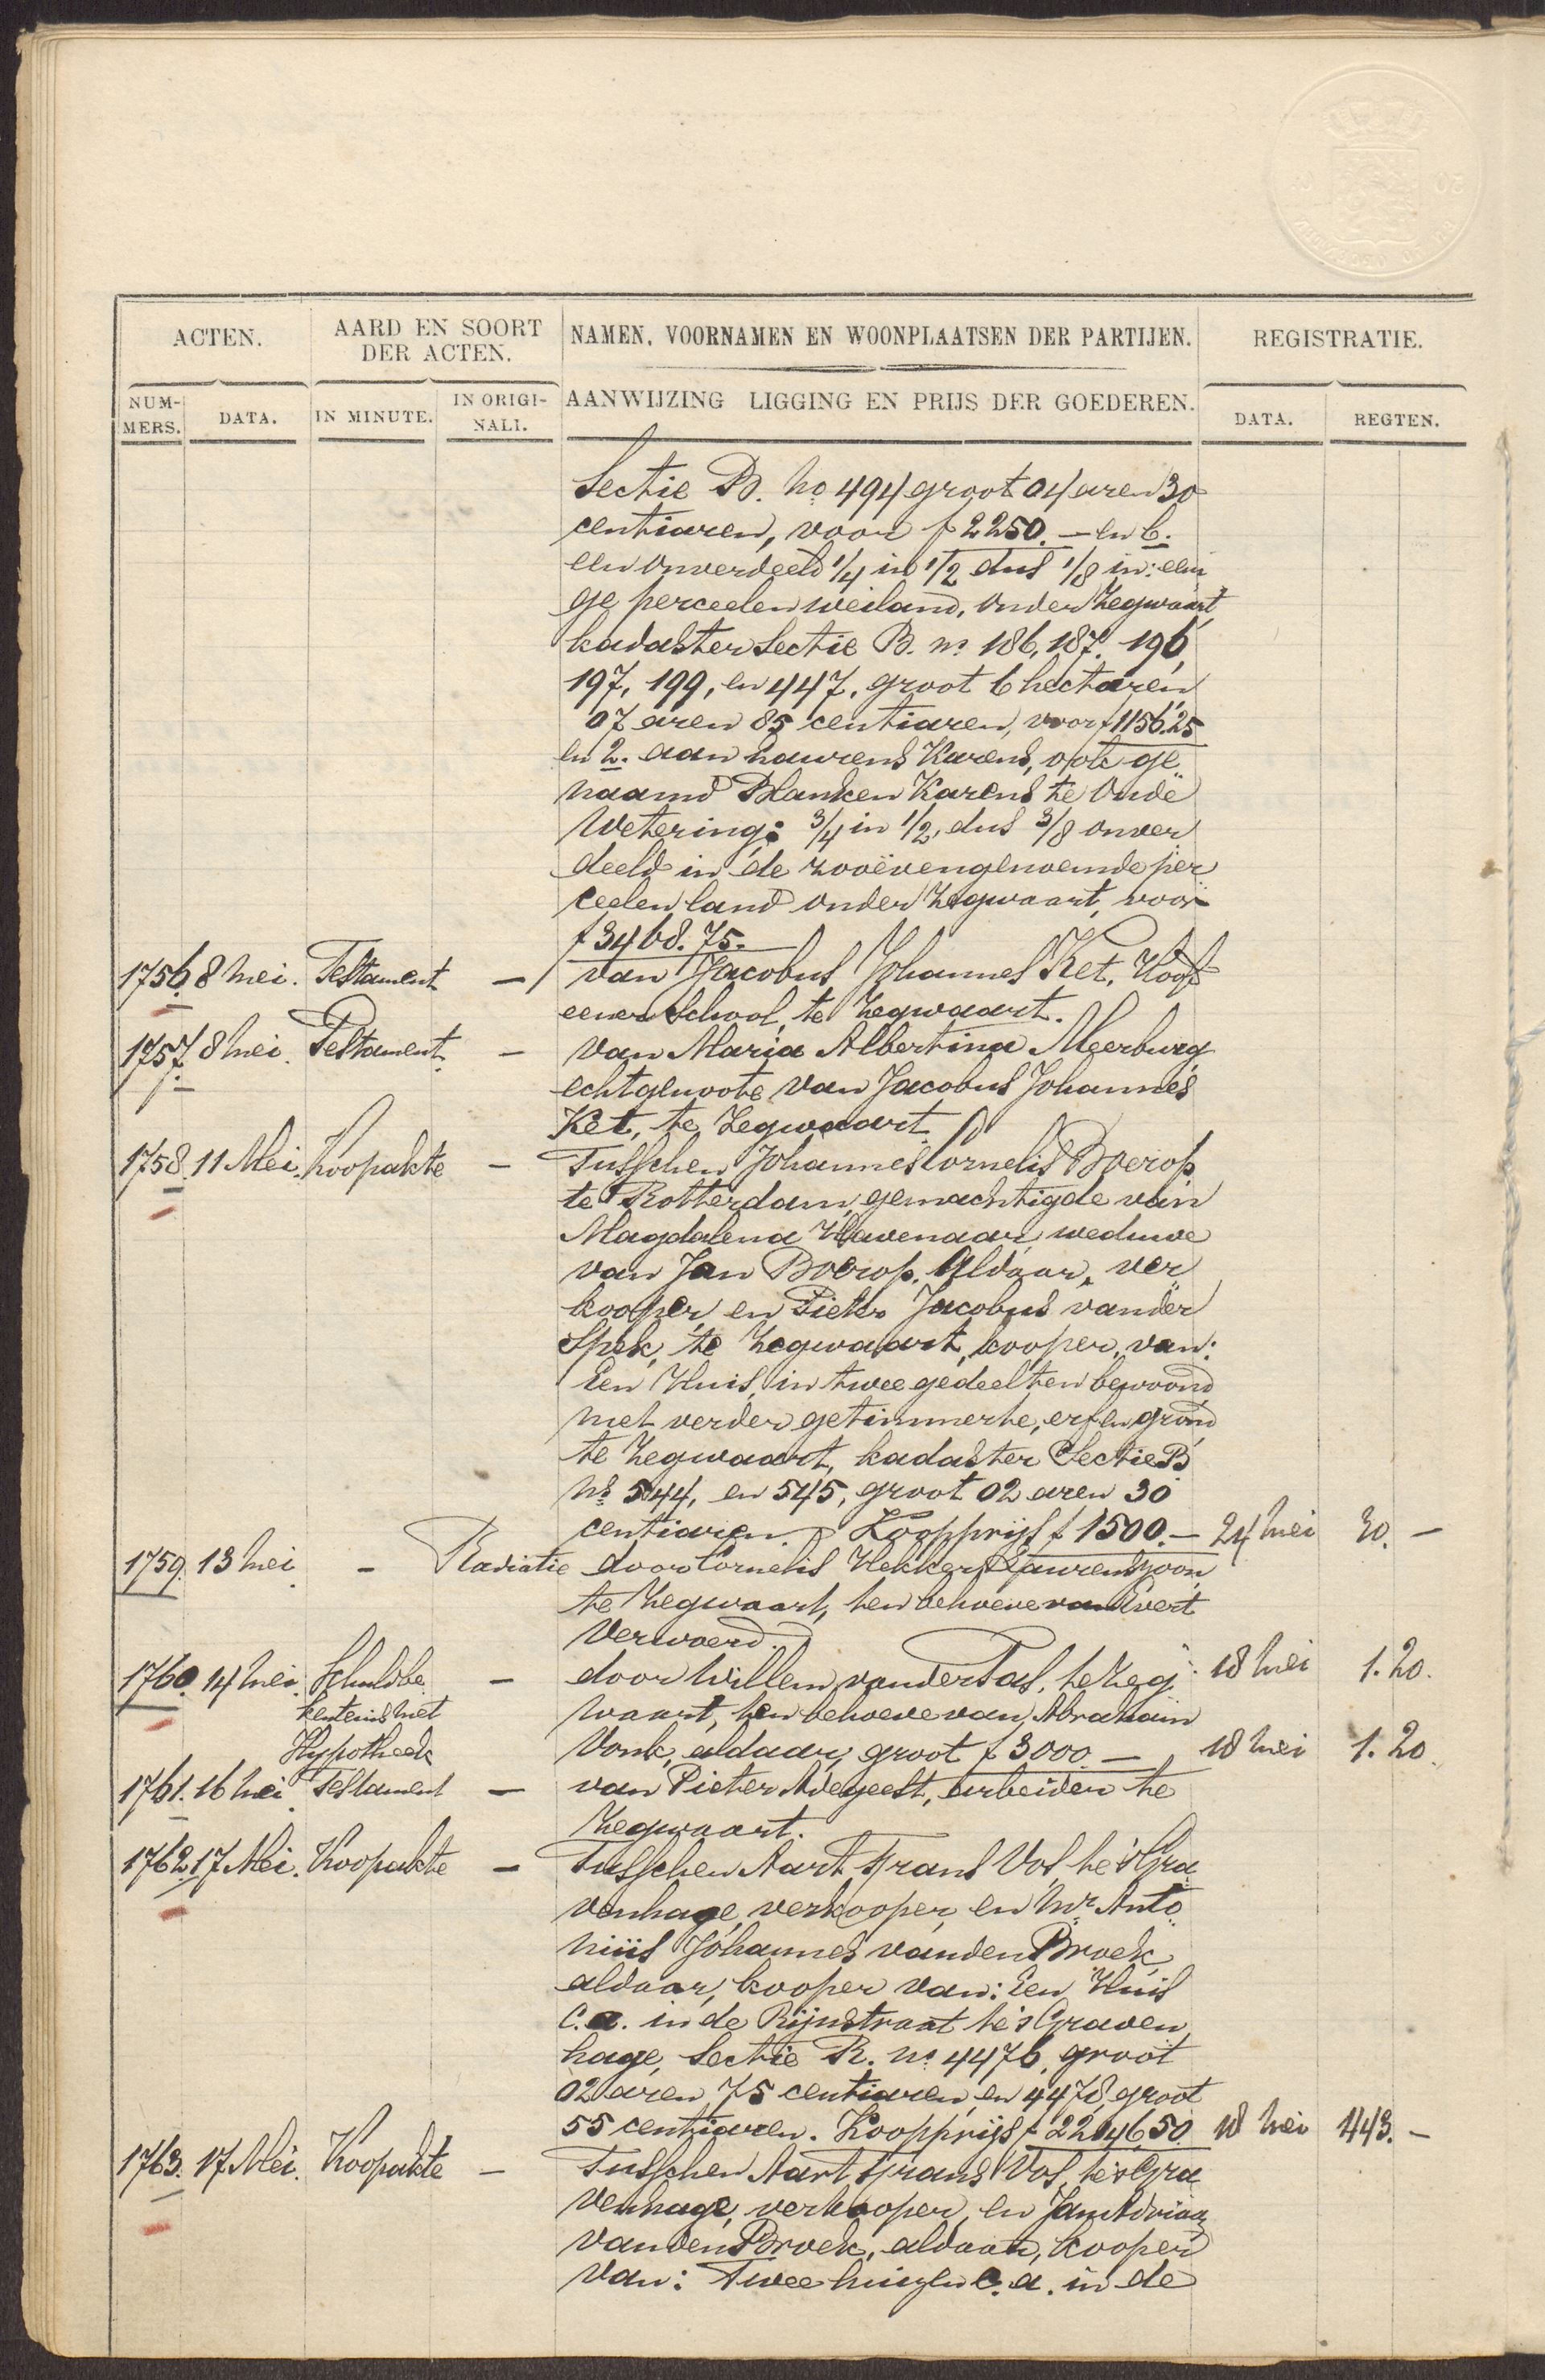 ACTEN.
AARD EN SOORT
DER ACTEN.
NAMEN, VOORNAMEN EN WOONPLAATSEN DER PARTIJEN.
REGISTRATIE.
NUM-
MERS.
DATA.
IN MINUTE.
IN ORIGI-
NALI.
AANWIJZING LIGGING EN PRIJS DER GOEDEREN.
DATA.
REGTEN.
Sectie B. No 494 groot 04 aren 30
centiaren, voor f 2250.— en b.
een onverdeeld 1/4 in 1/2 dus 1/8 in: eeni
ge perceelen weiland, onder Zegwaart,
kadaster Sectie B. no 186, 187. 196,
197, 199, en 447, groot 6 hectaren
07 aren 85 centiaren, voor f 1156.25
en 2. aan Laurens Karens, ook ge„
naamd Blanken Karens te Oude
Wetering: 3/4 in 1/2, dus 3/8 onver„
deeld in de zooëvengenoemde per„
ceelen land onder Zegwaart, voor
f 3468.75.—
1756. 8 Mei. Testament — van Jacobus Johannes Ket, Hoofd
eener School, te Zegwaart.
1757. 8 Mei. Testament. — van Maria Albertina Meerburg
echtgenoote van Jacobus Johannes
Ket, te Zegwaart.
1758. 11 Mei. Koopakte — Tusschen Johannes Cornelis Boerop
te Rotterdam, gemachtigde van
Magdalena Havenaar, weduwe
van Jan Boerop. Aldaar, ver„
kooper, en Pieter Jacobus vander
Spek, te Zegwaart, kooper, van:
Een Huis, in twee gedeelten bewoond
met verder getimmerte, erf en grond
te Zegwaart, kadaster Sectie B
Ns 544, en 545, groot 02 aren 30
centiaren. Koopprijs f 1500.— 24 Mei 30.—
1759. 13 Mei. — Radiatie door Cornelis Hekker Laurenszoon,
te Zegwaart, ten behoeve van Evert
Verwoerd.
1760. 14 Mei. Schuldbe„ — door Willem vander Tas, te Zeg„ 18 Mei 1.20.
kentenis met waart, ten behoeve van Abraham
Hypotheek Vonk, aldaar, groot f 3000.— 18 Mei 1.20.
1761. 16 Mei. Testament — van Pieter Adegeest, arbeider te
Zegwaart.
1762. 17 Mei. Koopakte — Tusschen Aart Frans Vos, te 's Gra„
venhage, verkooper, en Mr Anto„
nius Johannes vanden Broek,
aldaar, kooper van: Een Huis
c.a. in de Rijnstraat te 's Graven„
hage, Sectie R. no 4476, groot
02 aren 75 centiaren, en 4478, groot
55 centiaren. Koopprijs f 22046.50. 18 Mei 443.—
1763. 17 Mei. Koopakte — Tusschen Aart Frans Vos, te 's Gra„
venhage, verkooper, en Jan Adriaan
vanden Broek, aldaar, kooper
van: Twee huizen c.a. in de